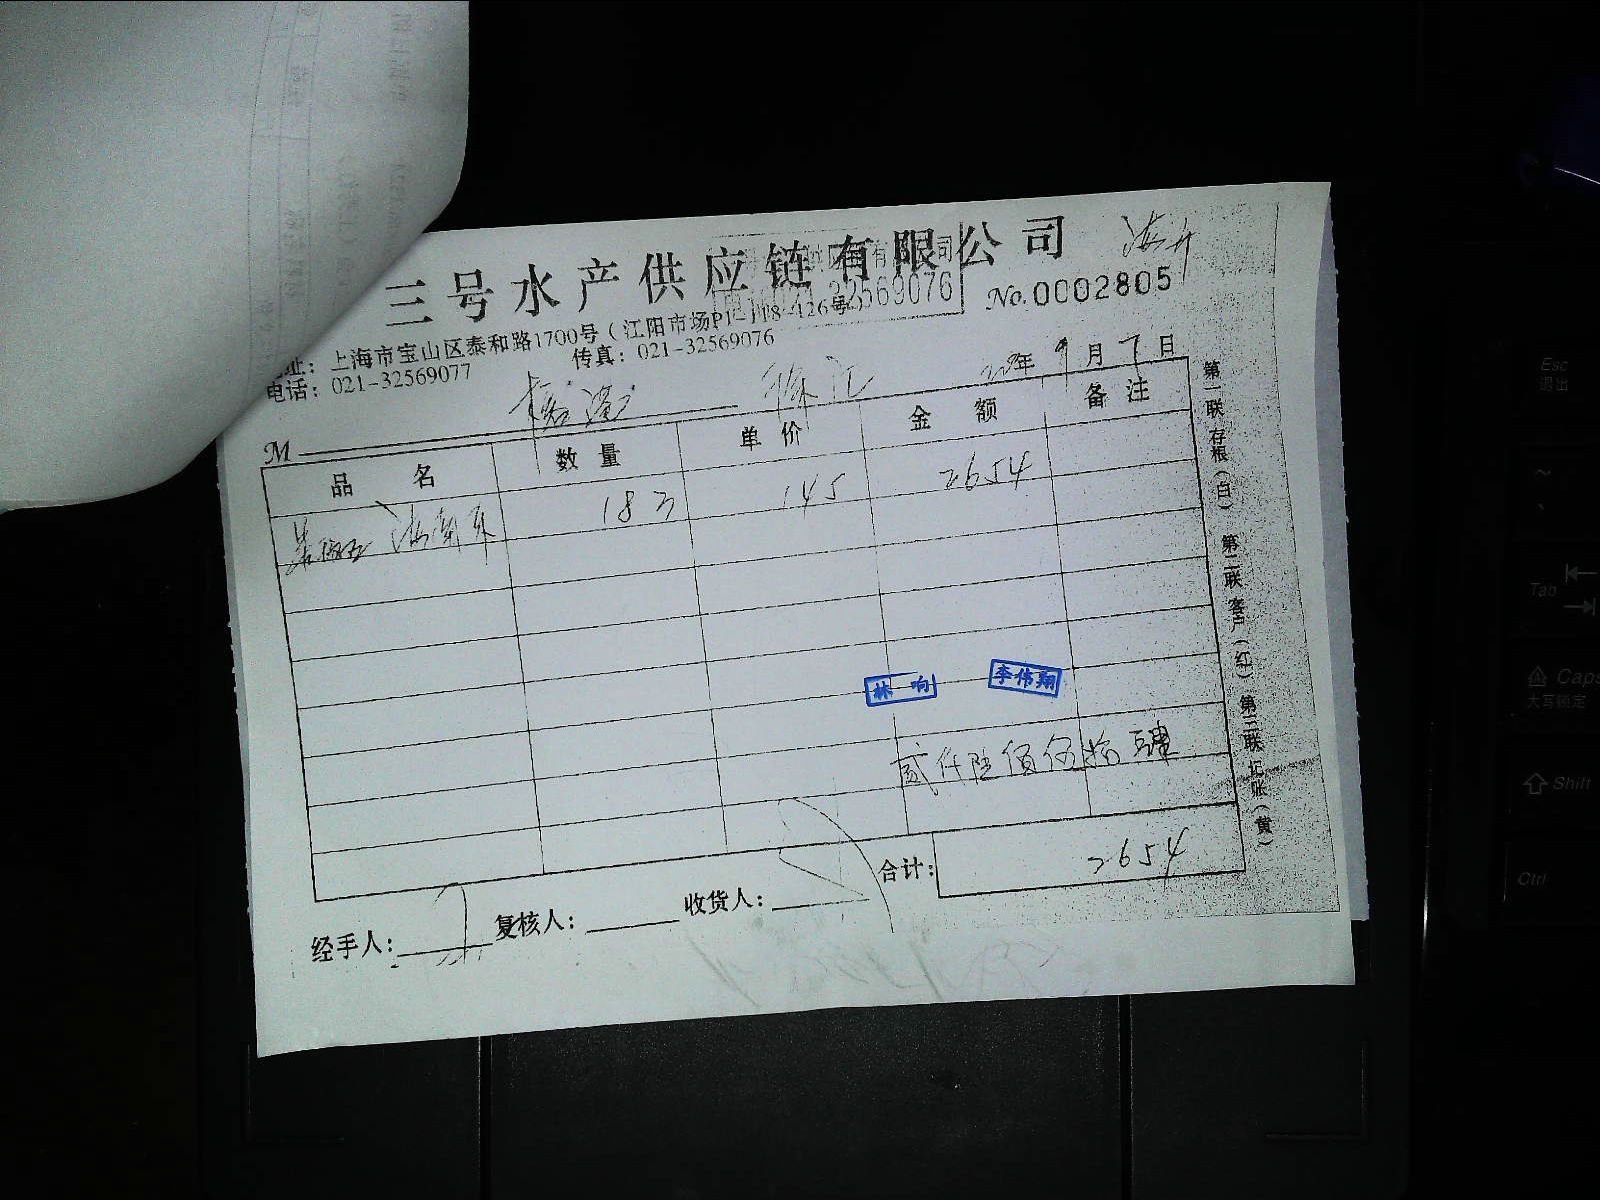 三号水产供应链有限公司
32569076
No.0002805
址：上海市宝山区泰和路1700号（江阳市场P1-118-126号）
电话：021-32569077 传真：021-32569076
年9月7日
M
品名 数量 单价 金额 备注
183 145 2654
林响 李伟翔
贰仟陆佰伍拾肆
合计：2654
经手人： 复核人： 收货人：
第一联存根（白） 第二联客户（红） 第三联记账（黄）
Esc
退出
Tab
Caps
大写锁定
Shift
Ctrl